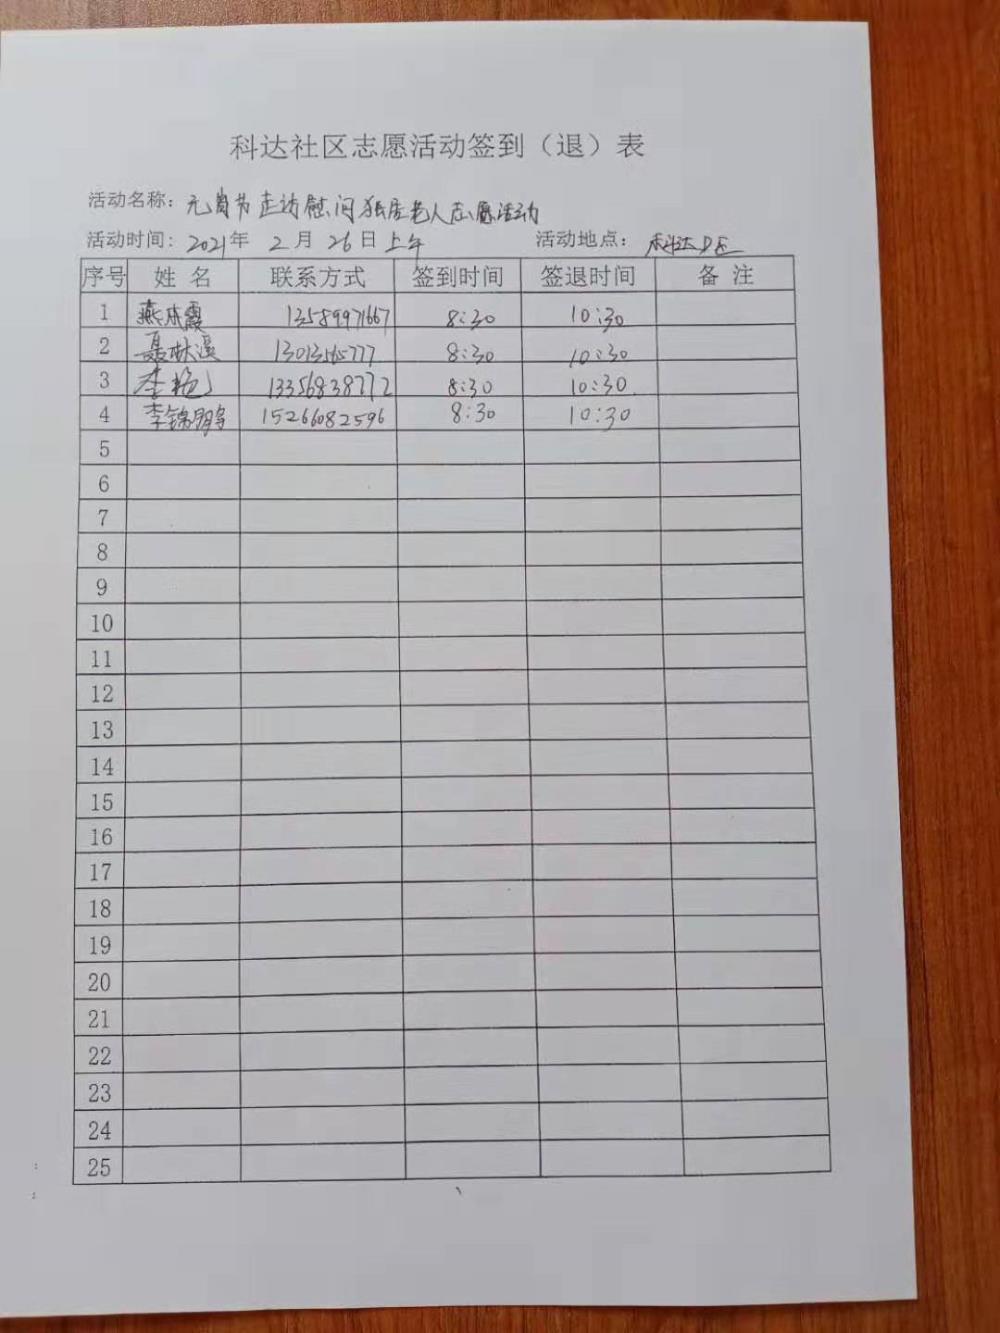 科达社区志愿活动签到（退）表
活动名称：元宵节走访慰问独居老人志愿活动
活动时间：2021年 2月 26日上午 活动地点：科达
序号 姓 名 联系方式 签到时间 签退时间 备 注
1 燕霞 13589971667 8:30 10:30
2 聂林溪 13013565777 8:30 10:30
3 李艳 13356838772 8:30 10:30
4 李锦鹏 15266082596 8:30 10:30
5
6
7
8
9
10
11
12
13
14
15
16
17
18
19
20
21
22
23
24
25